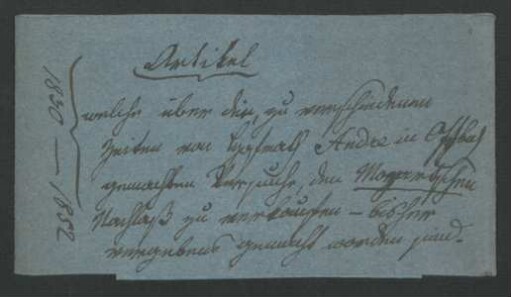 Artikel
welche über die, zu verschiedenen
Zeiten von Hofrath André in Offbach
gemachten Versuche, den Mozart'schen
Nachlaß zu verkaufen – bisher
vergebens gemacht worden sind.
1830 – 1852